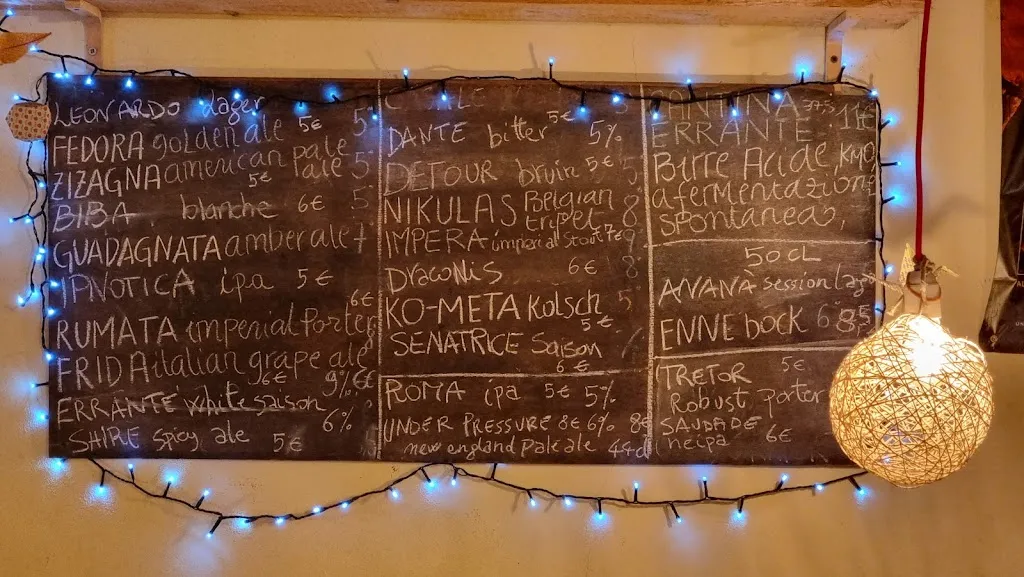 LEONARDO lager 5€ 5
FEDORA golden ale
ZIZAGNA american pale ale 5
5€
BIBA blanche 6€ 5
GUADAGNATA amber ale 7
IPNOTICA ipa 5€
6€
RUMATA imperial Porter
FRIDA italian grape ale
9%
ERRANTE white saison
6%
SHIRE spicy ale 5€
5€
DANTE bitter 5%
DETOUR bruin 5€ 5
NIKULAS Belgian tripel 8
IMPERA imperial Stout 7€
DRACONIS 6€ 8
KO-META Kolsch 5
5€
SENATRICE Saison
6€
ROMA ipa 5€ 5%
UNDER PRESSURE 8€ 6% 8€
new england Pale ale
CANTINA 375
ERRANTE
Birre Acide KM0
a fermentazione
spontanea
50 CL
ANANÀ session
ENNE bock 6
5€
TRETOR
Robust porter
SAUDADE
neipa 6€